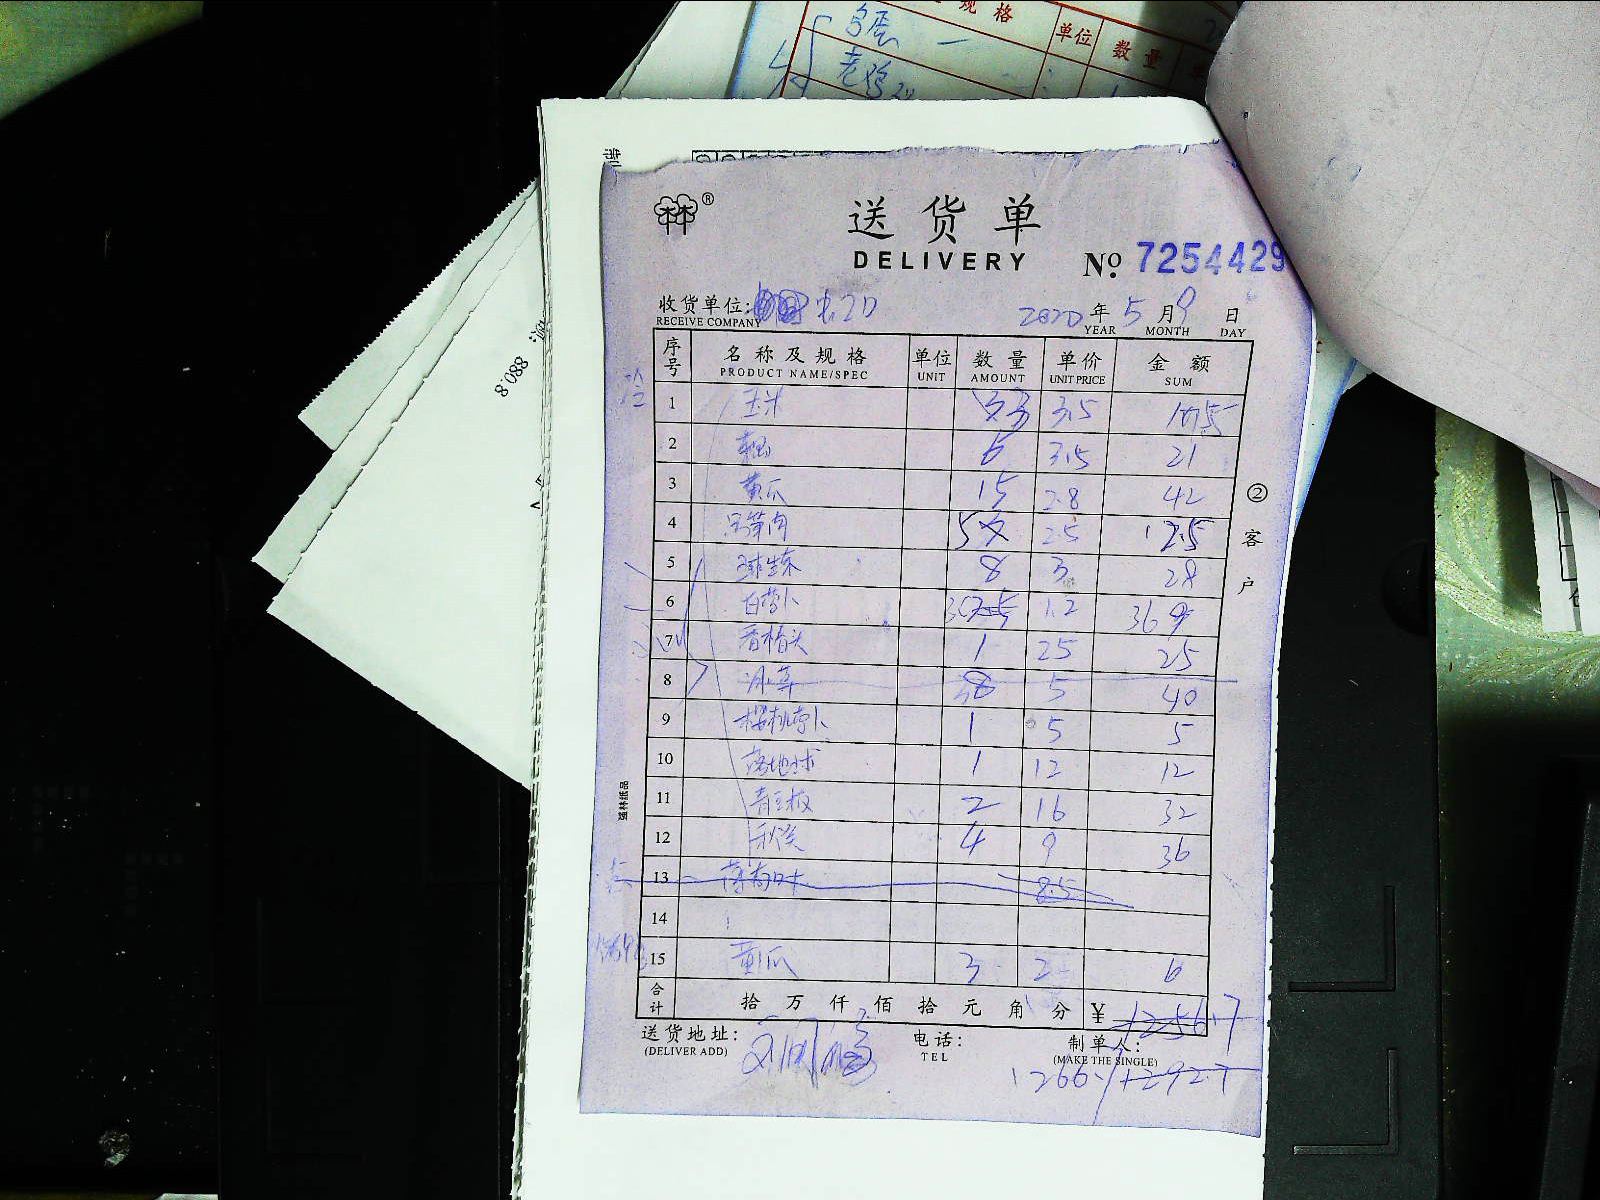 规格
单位 数量
老鸡
880.8
送货单
DELIVERY
No. 7254429
收货单位:
RECEIVE COMPANY
2020年5月9日
YEAR MONTH DAY
序号 名称及规格 单位 数量 单价 金额
PRODUCT NAME/SPEC UNIT AMOUNT UNIT PRICE SUM
1 玉米 3.5
2 藕 6 3.5 21
3 黄瓜 15 2.8 42
4 25 125
5 球生菜 8 3 28
6 白萝卜 30 1.2 36
7 香椿头 1 25 25
8 冰草 5 40
9 樱桃萝卜 1 5 5
10 1 12 12
11 青豆板 2 16 32
12 秋葵 4 9 36
13 8.5
14
15 黄瓜 3 2 6
合计 拾万仟佰拾元角分 ¥ 1256.7
送货地址: 电话: 制单人:
(DELIVER ADD) TEL (MAKE THE SINGLE)
1266.7 1292.7
②客户
强林纸品